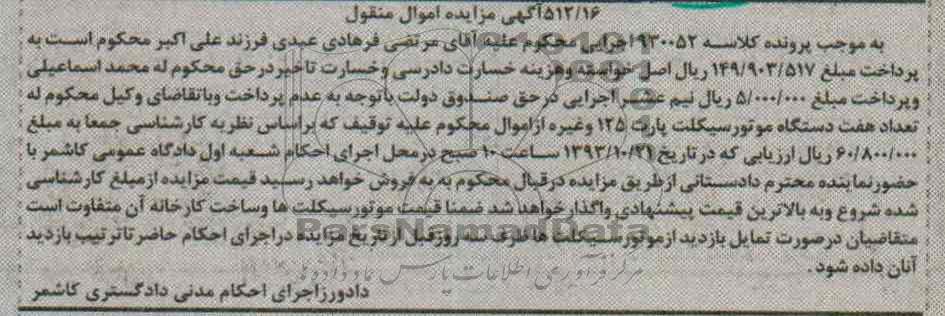 ۵۱۲/۱۶آگهی مزایده اموال منقول
به موجب پرونده کلاسه ۹۳۰۰۵۲ اجرایی محکوم علیه آقای مرتضی فرهادی عبدی فرزند علی اکبر محکوم است به
پرداخت مبلغ ۱۴۹/۹۰۳/۵۱۷ ریال اصل خواسته وهزینه خسارت دادرسی وخسارت تاخیر درحق محکوم له محمد اسماعیلی
وپرداخت مبلغ ۵/۰۰۰/۰۰۰ ریال نیم عشر اجرایی درحق صندوق دولت باتوجه به عدم پرداخت وباتقاضای وکیل محکوم له
تعداد هفت دستگاه موتورسیکلت پارت ۱۲۵ وغیره ازاموال محکوم علیه توقیف که براساس نظریه کارشناسی جمعا به مبلغ
۶۰/۸۰۰/۰۰۰ ریال ارزیابی که در تاریخ ۱۳۹۳/۱۰/۲۱ ساعت ۱۰ صبح درمحل اجرای احکام شعبه اول دادگاه عمومی کاشمر با
حضورنماینده محترم دادستانی ازطریق مزایده درقبال محکوم به به فروش خواهد رسید قیمت مزایده ازمبلغ کارشناسی
شده شروع وبه بالاترین قیمت پیشنهادی واگذارخواهد شد ضمنا قیمت موتورسیکلت ها وساخت کارخانه آن متفاوت است
متقاضیان درصورت تمایل بازدید ازموتورسیکلت ها ظرف سه روزقبل ازتاریخ مزایده دراجرای احکام حاضرتاترتیب بازدید
آنان داده شود.
دادورزاجرای احکام مدنی دادگستری کاشمر
ParsNamadData
مرکز فرآوری اطلاعات پارس نماد داده ها